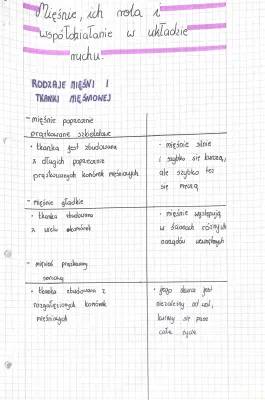 Mięśnie, ich rola i
współdziałanie w układzie
ruchu.
RODZAJE MIĘŚNI I
TKANKI MIĘŚNIOWEJ
- mięśnie poprzecznie
prążkowane szkieletowe
• tkanka jest zbudowana
z długich poprzecznie
prążkowanych komórek mięśniowych
• mięśnie silnie
i szybko się kurczą,
ale szybko też
się męczą
- mięśnie gładkie
• tkanka zbudowana
z wielu
• mięśnie występują
w ścianach różnych
narządów wewnętrznych
- mięsień prążkowany
• tkanka zbudowana z
rozgałęzionych komórek
mięśniowych
• jego skurcz jest
niezależny od woli,
kurczy się przez
całe życie